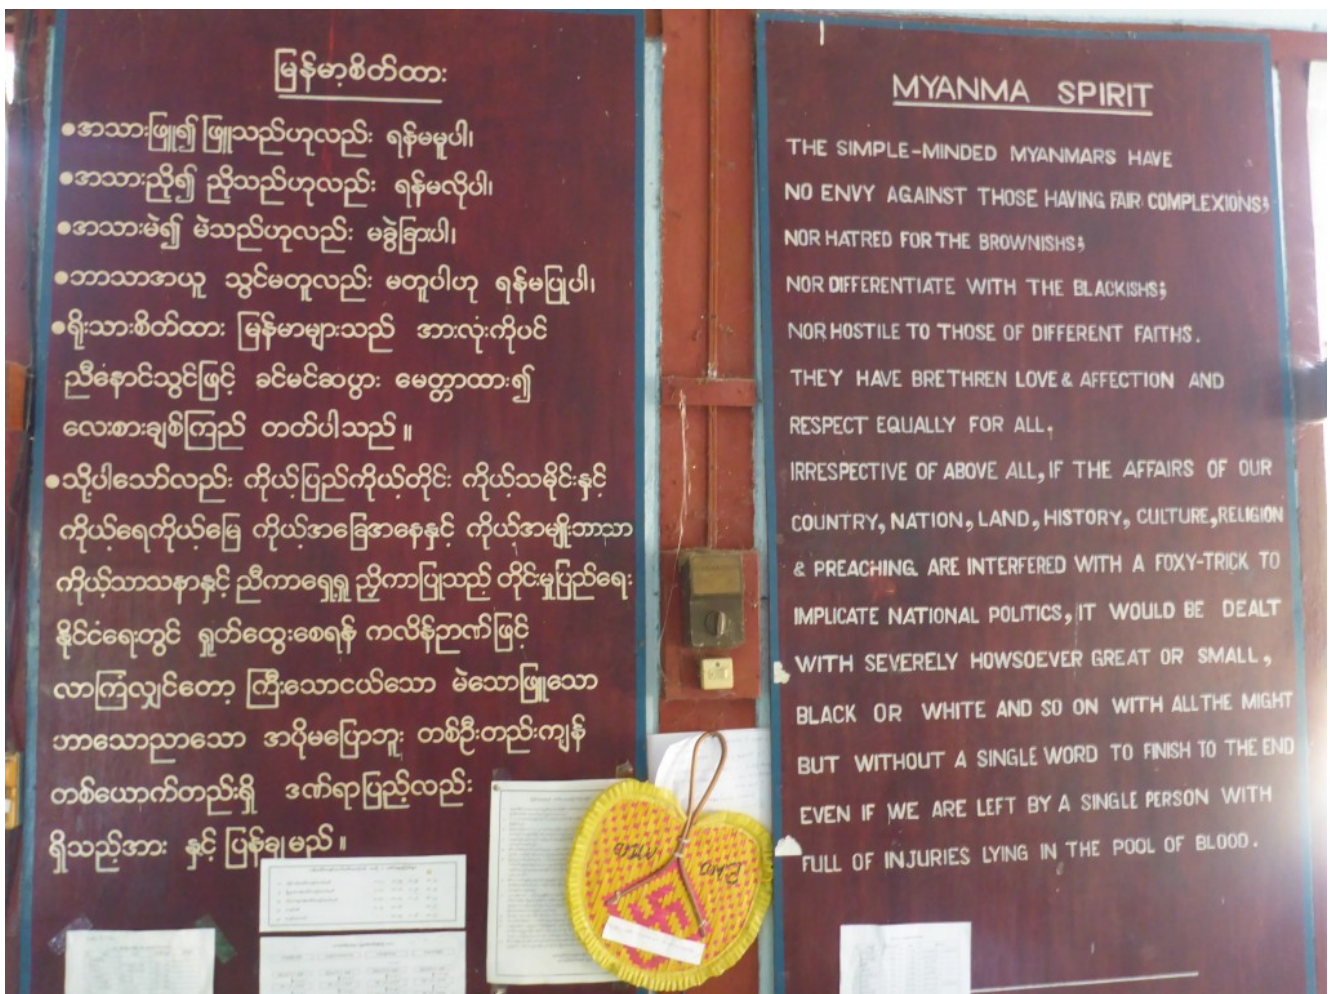 မြန်မာ့စိတ်ထား
•အသားဖြူ၍ ဖြူသည်ဟုလည်း ရန်မမူပါ၊
•အသားညို၍ ညိုသည်ဟုလည်း ရန်မလိုပါ၊
•အသားမဲ၍ မဲသည်ဟုလည်း မခွဲခြားပါ၊
•ဘာသာအယူ သွင်မတူလည်း မတူပါဟု ရန်မပြုပါ၊
•ရိုးသားစိတ်ထား မြန်မာများသည် အားလုံးကိုပင်
ညီနောင်သွင်ဖြင့် ခင်မင်ဆပွား မေတ္တာထား၍
လေးစားချစ်ကြည် တတ်ပါသည်။
•သို့ပါသော်လည်း ကိုယ့်ပြည်ကိုယ့်တိုင်း ကိုယ့်သမိုင်းနှင့်
ကိုယ့်ရေကိုယ့်မြေ ကိုယ့်အခြေအနေနှင့် ကိုယ့်အမျိုးဘာသာ
ကိုယ့်သာသနာနှင့် ညီကာရှေ့ရှု ညှိကာပြုသည့် တိုင်းမှုပြည်ရေး
နိုင်ငံရေးတွင် ရှုတ်ထွေးစေရန် ကလိန်ဉာဏ်ဖြင့်
လာကြံလျှင်တော့ ကြီးသောငယ်သော မဲသောဖြူသော
ဟာသောညာသော အပိုမပြောဘူး တစ်ဦးတည်းကျန်
တစ်ယောက်တည်းရှိ ဒဏ်ရာပြည့်လည်း
ရှိသည့်အား နှင့် ပြန်ချမည်။
MYANMA SPIRIT
THE SIMPLE-MINDED MYANMARS HAVE
NO ENVY AGAINST THOSE HAVING FAIR COMPLEXIONS;
NOR HATRED FOR THE BROWNISHS;
NOR DIFFERENTIATE WITH THE BLACKISHS;
NOR HOSTILE TO THOSE OF DIFFERENT FAITHS.
THEY HAVE BRETHREN LOVE & AFFECTION AND
RESPECT EQUALLY FOR ALL.
IRRESPECTIVE OF ABOVE ALL, IF THE AFFAIRS OF OUR
COUNTRY, NATION, LAND, HISTORY, CULTURE, RELIGION
& PREACHING ARE INTERFERED WITH A FOXY-TRICK TO
IMPLICATE NATIONAL POLITICS, IT WOULD BE DEALT
WITH SEVERELY HOWSOEVER GREAT OR SMALL,
BLACK OR WHITE AND SO ON WITH ALL THE MIGHT
BUT WITHOUT A SINGLE WORD TO FINISH TO THE END
EVEN IF WE ARE LEFT BY A SINGLE PERSON WITH
FULL OF INJURIES LYING IN THE POOL OF BLOOD.